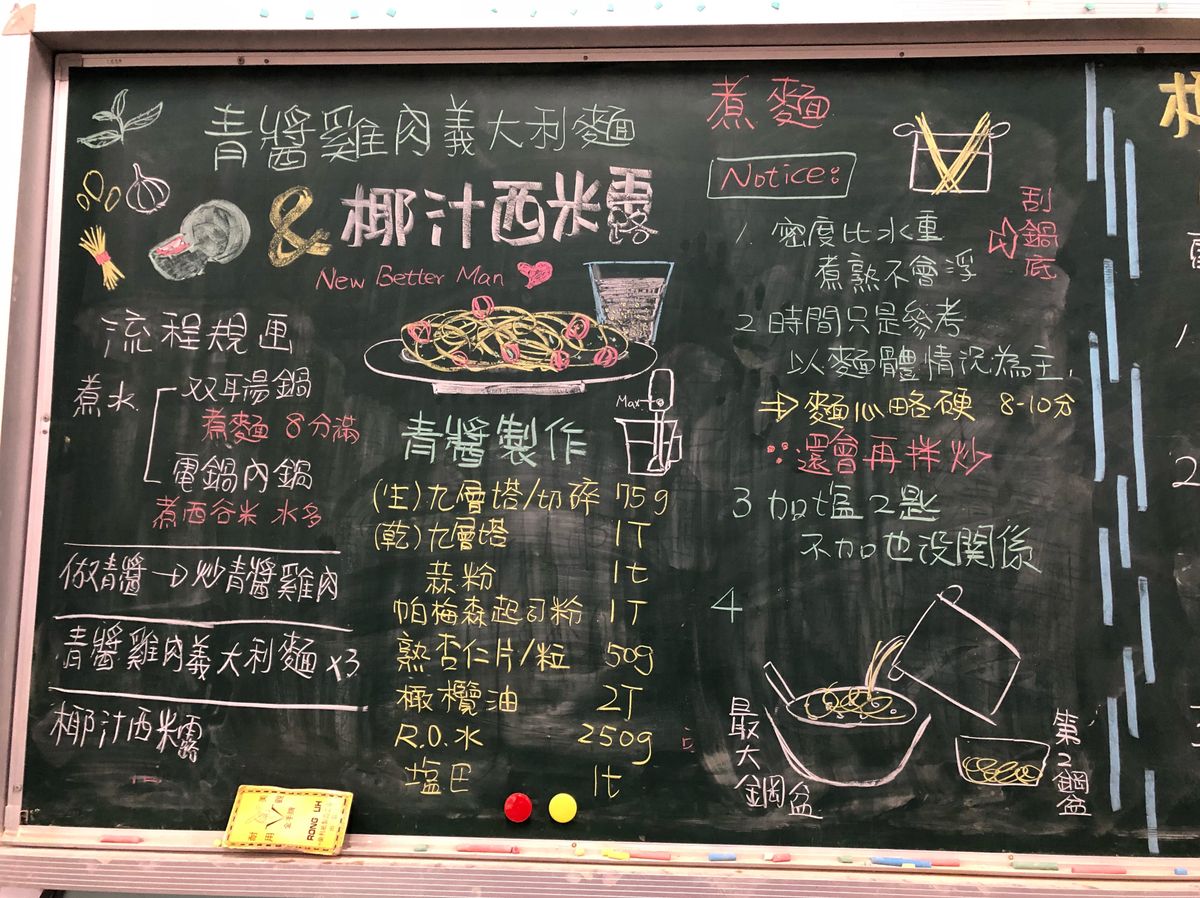 青醬雞肉義大利麵
& 椰汁西米露
New Better Man
流程規画
煮水
双耳湯鍋
煮麵 8分滿
電鍋內鍋
煮西谷米 水多
做青醬→炒青醬雞肉
青醬雞肉義大利麵 x3
椰汁西米露
Max
青醬製作
(生)九層塔/切碎 75g
(乾)九層塔 1T
蒜粉 1t
帕梅森起司粉 1T
熟杏仁片/粒 50g
橄欖油 2T
R.O.水 250g
塩巴 1t
煮麵
Notice:
1. 密度比水重
煮熟不會浮
⇨ 刮鍋底
2 時間只是參考
以麵體情況為主.
⇒ 麵心略硬 8-10分
∵還會再拌炒
3 加塩2匙
不加也没關係
4
最大鋼盆
第2鋼盆
耐用
美觀
全手牌
RONG LIH